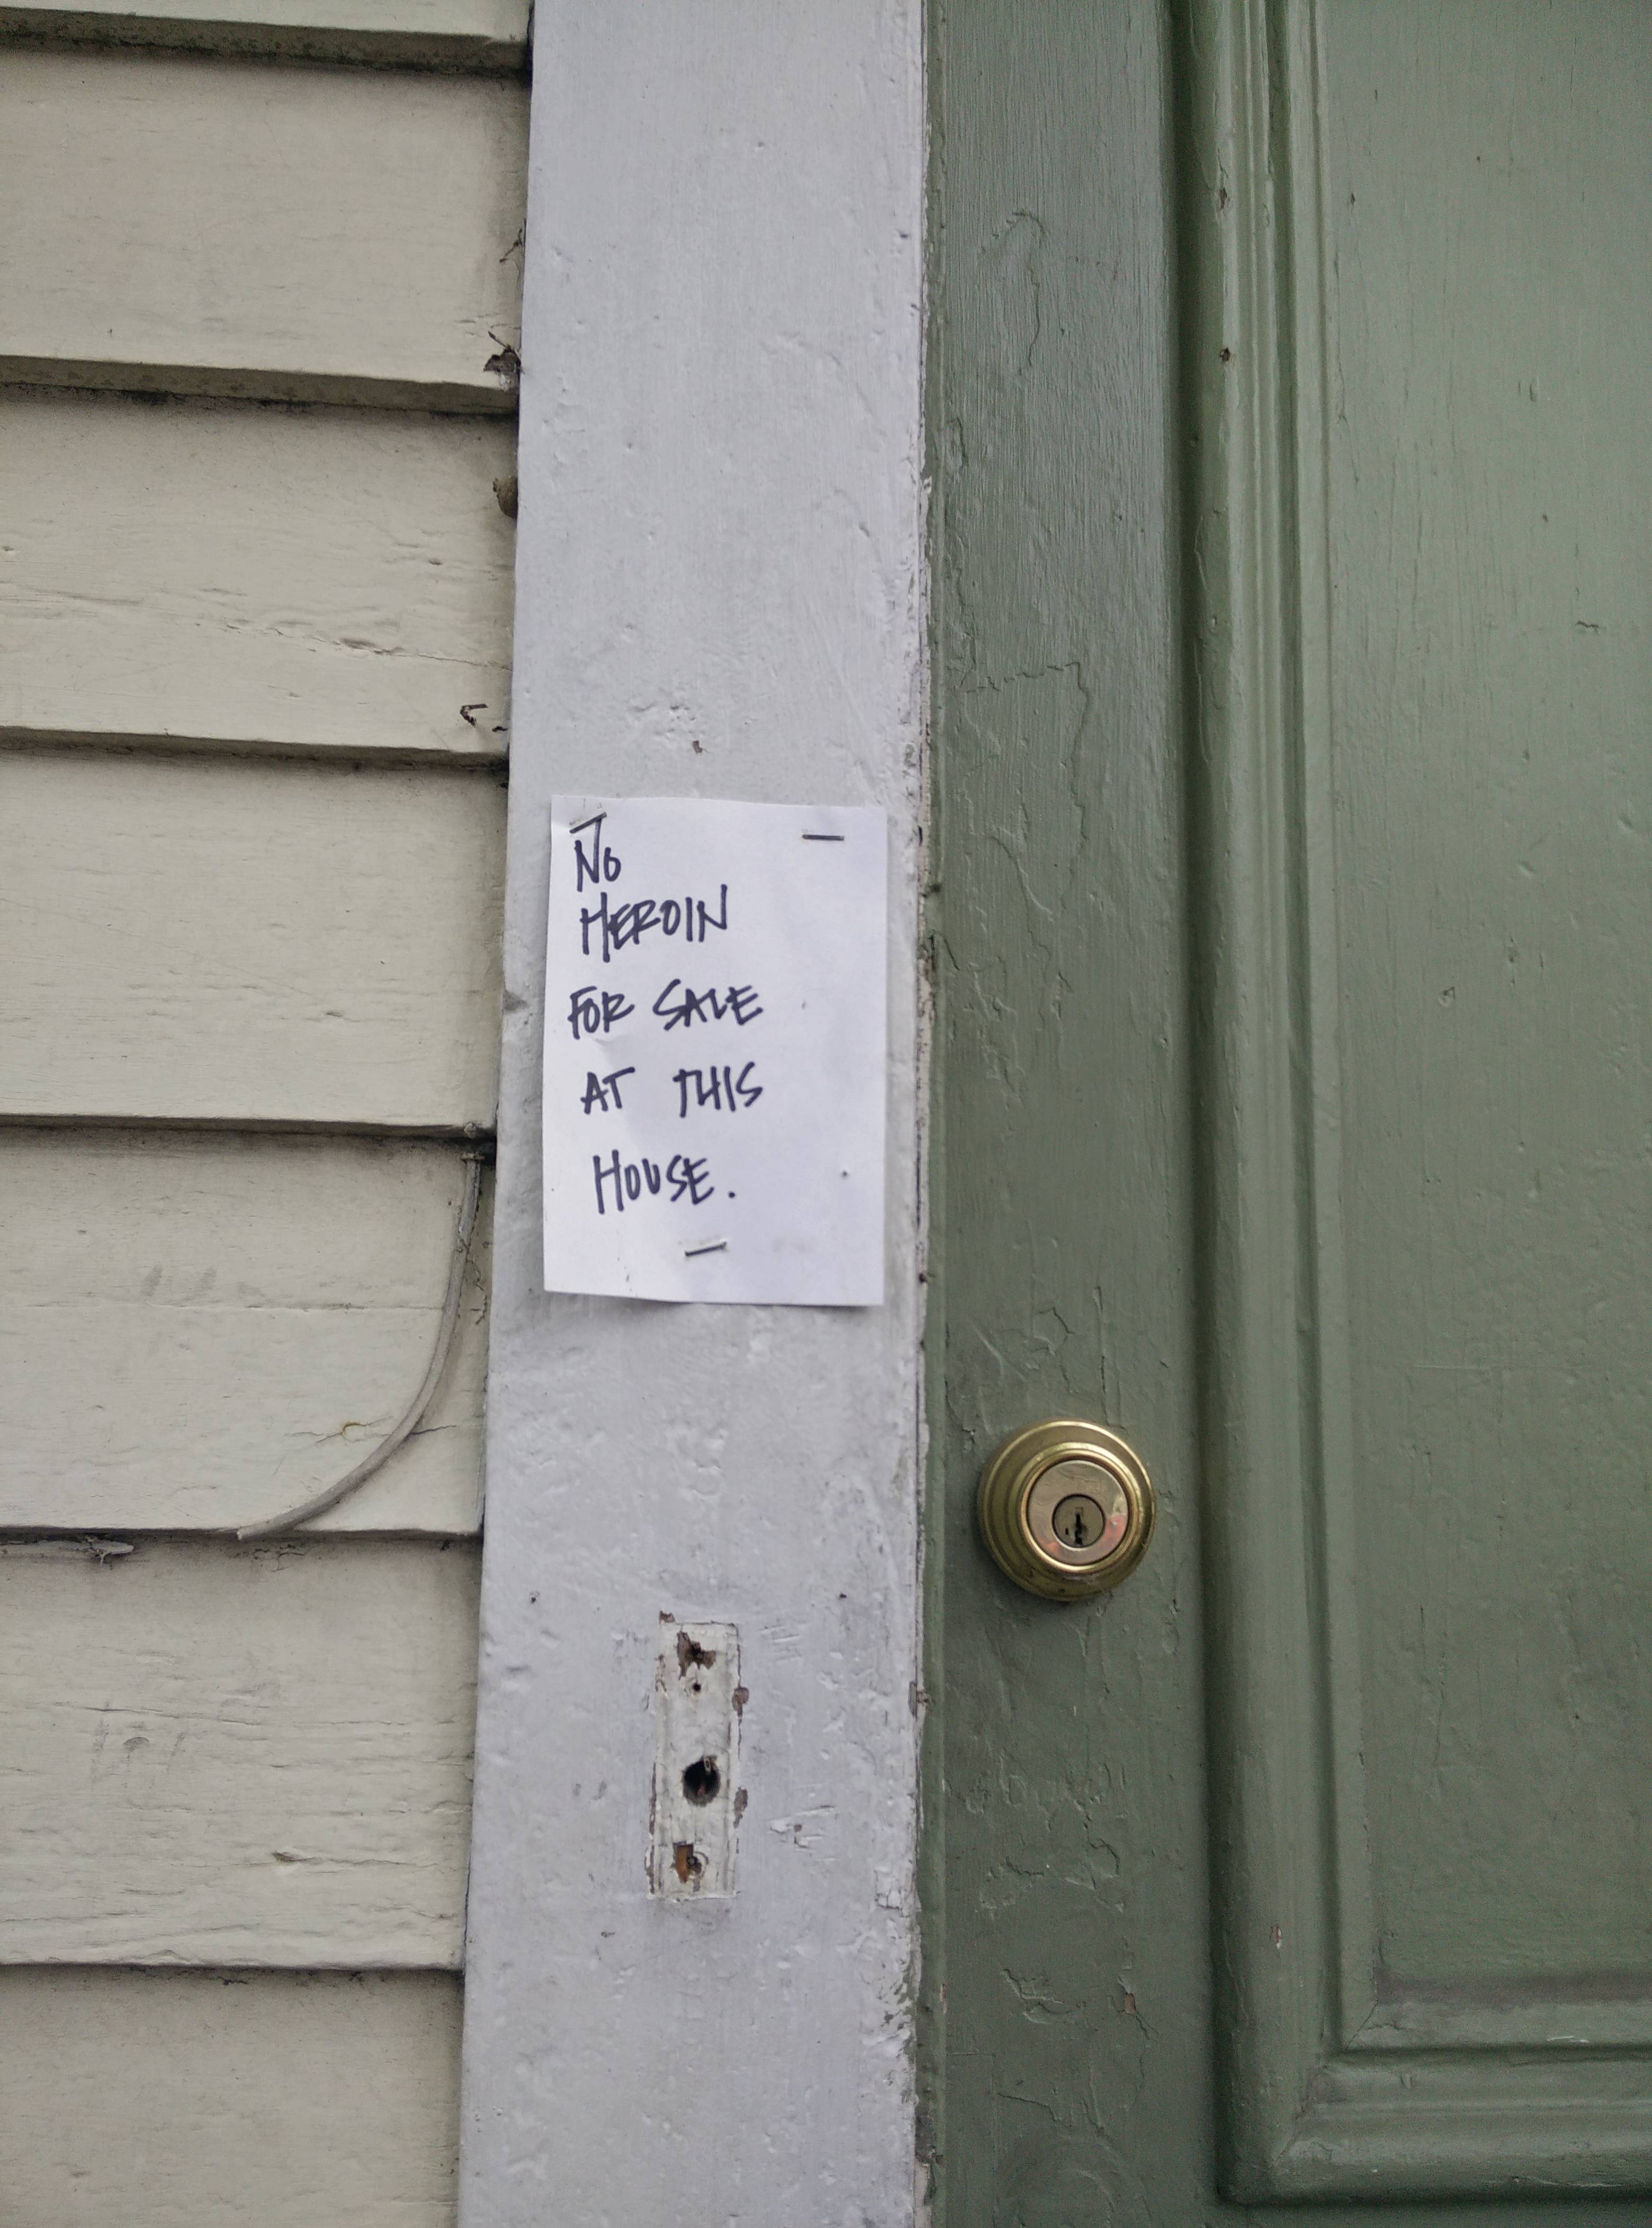 No
HEROIN
FOR SALE
AT THIS
HOUSE.